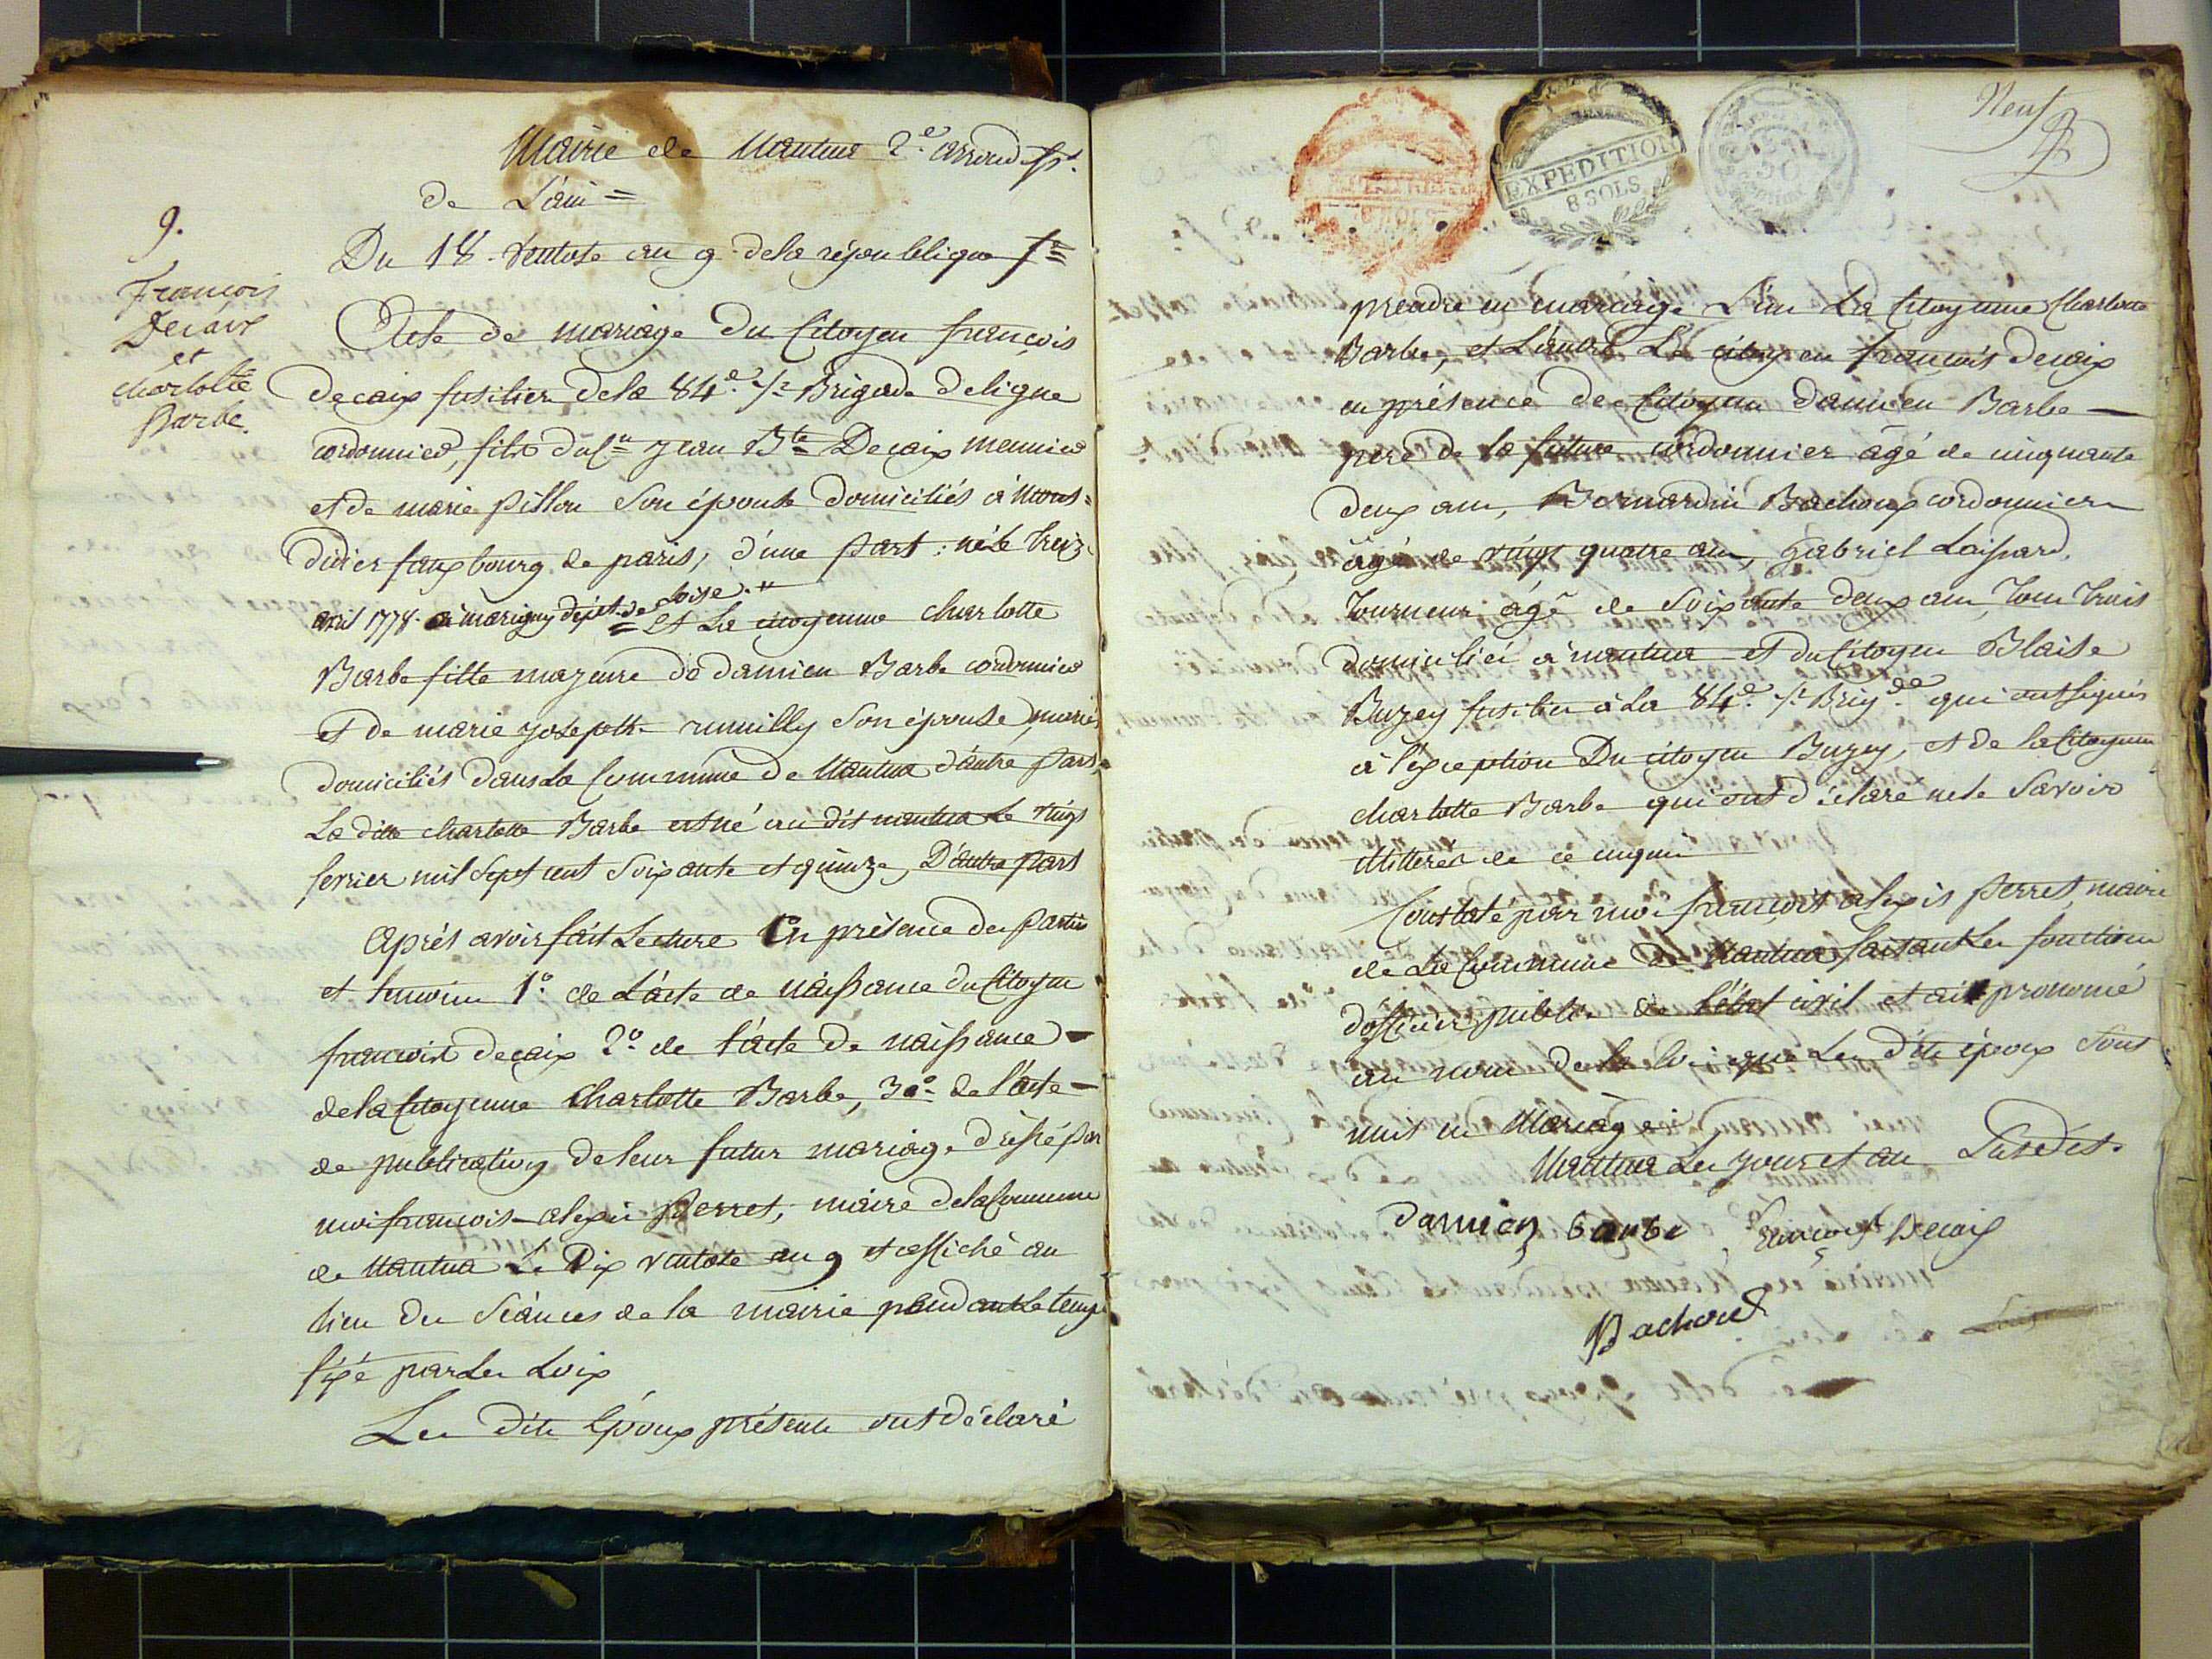 Mairie de Nantua 2.e arrondisst.
de L'ain =
9.
Du 18 ventose an 9 de la république fse
François
Decaix
et
charlotte
Barbe.
Acte de mariage du Citoyen françois
decaix fusilier de la 84e 1/2 Brigade de ligne
cordonnier, fils du Cn jean Bte Decaix meunier
et de marie pillon son épouse domiciliés à mont=
didier fauxbourg de paris, d'une part; né le treize
avril 1778. à marigny dépt. de Loise. "
= et La citoyenne charlotte
Barbe fille majeure de damien Barbe cordonnier
et de marie josepth rumilly son épouse, mariés
domiciliés dans la Commune de Nantua d'autre part,
La dite charlotte Barbe est né au dit nantua Le vingt
fevrier mil sept cent soixante et quinze, D'autre part
Aprés avoir fait Lecture En présence des parties
et temoins 1.o de L'acte de naissance du Citoyen
francois decaix 2.o de l'acte de naissance -
de la Citoyenne Charlotte Barbe, 3.o de l'acte -
de publication de leur futur mariage dréssé par
moi françois-alexis Perret, maire de la Commune
de Nantua Le Dix ventose an 9 et affiché au
lieu des séances de la mairie pendant le temps
fixé par Les Loix
Les dits époux présents ont déclaré
Neuf
EXPÉDITION
8 SOLS
prendre en mariage L'un La Citoyenne Charlotte
Barbe, et L'autre Le citoyen francois decaix
en présence des Citoyens damien Barbe -
pere de la future cordonnier âgé de cinquante
deux ans, Bernardin Bachoux cordonnier
âgé de vingt quatre ans, Gabriel Laissard,
tourneur âgé de soixante deux ans, tous trois
domiciliés à nantua et du Citoyen Blaise
Buzey fusilier à la 84e 1/2 Brigde qui ont signés
à l'éxception Du citoyen Buzey, et de la Citoyenne
charlotte Barbe qui ont déclaré ne le savoir
de ce enquis
Constaté par moi françois alexis Perret, maire
de La Commune de Nantua faisant Les fonctions
d'officier public de l'état civil et ai prononcé
au nom de la loi que Les dits époux sont
unis en Mariage
Nantua Les jour et an susdits.
damien barbe francois Decaix
Bachoud